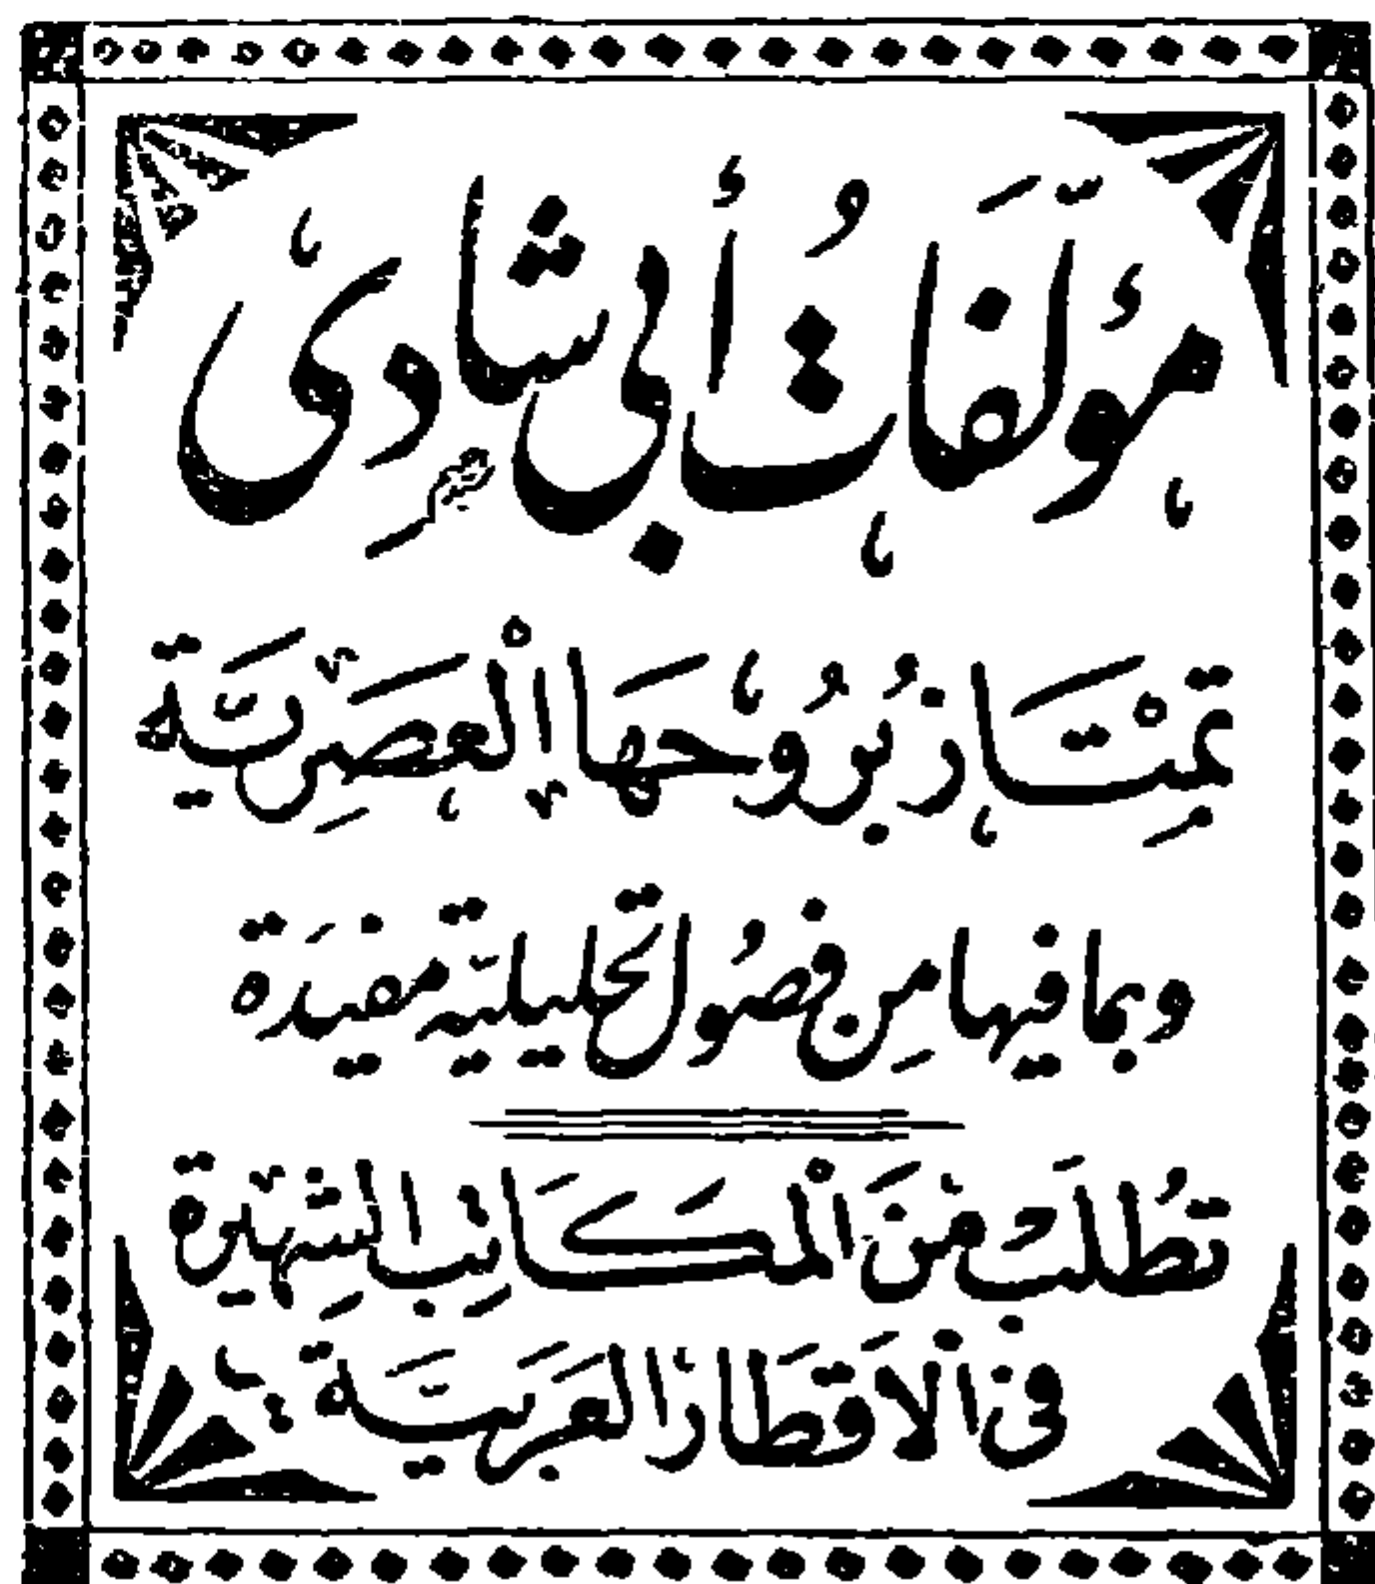 مؤلَّفَاتُ أبي شادى
تمْتَازُ بُروُحهَا الْعَصْرِيَّة
وبما فيها مِن فصُول تحَليليّة مفيدَة
تُطلَبْ مَنَ الْمكَاتِبِ الشِهْيرة
في الْأقطَار العَرَبيَّة